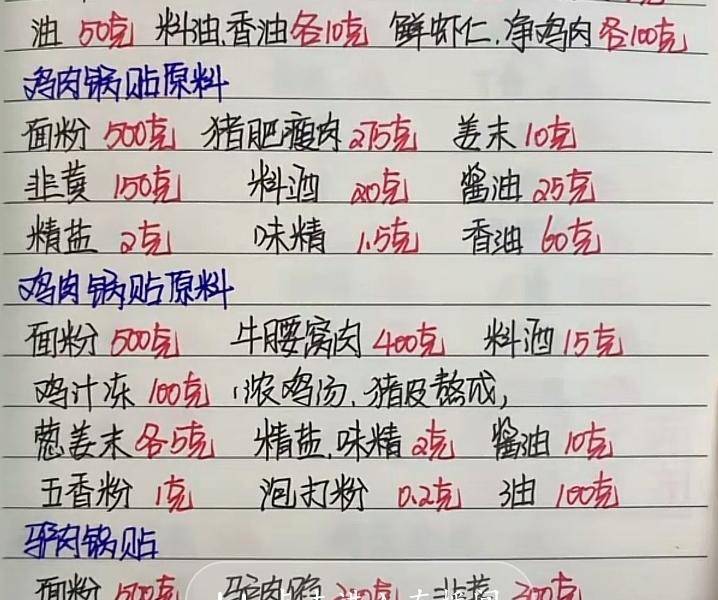 油 50克 料油.香油各10克 鲜虾仁.净鸡肉各100克
鸡肉锅贴原料
面粉 500克 猪肥瘦肉 275克 姜末 10克
韭黄 150克 料酒 20克 酱油 25克
精盐 2克 味精 1.5克 香油 60克
鸡肉锅贴原料
面粉 500克 牛腰窝肉 400克 料酒 15克
鸡汁冻 100克 (浓鸡汤.猪皮熬成,
葱姜末各5克 精盐.味精 2克 酱油 10克
五香粉 1克 泡打粉 0.2克 油 100克
驴肉锅贴
面粉 500克 韭黄 200克